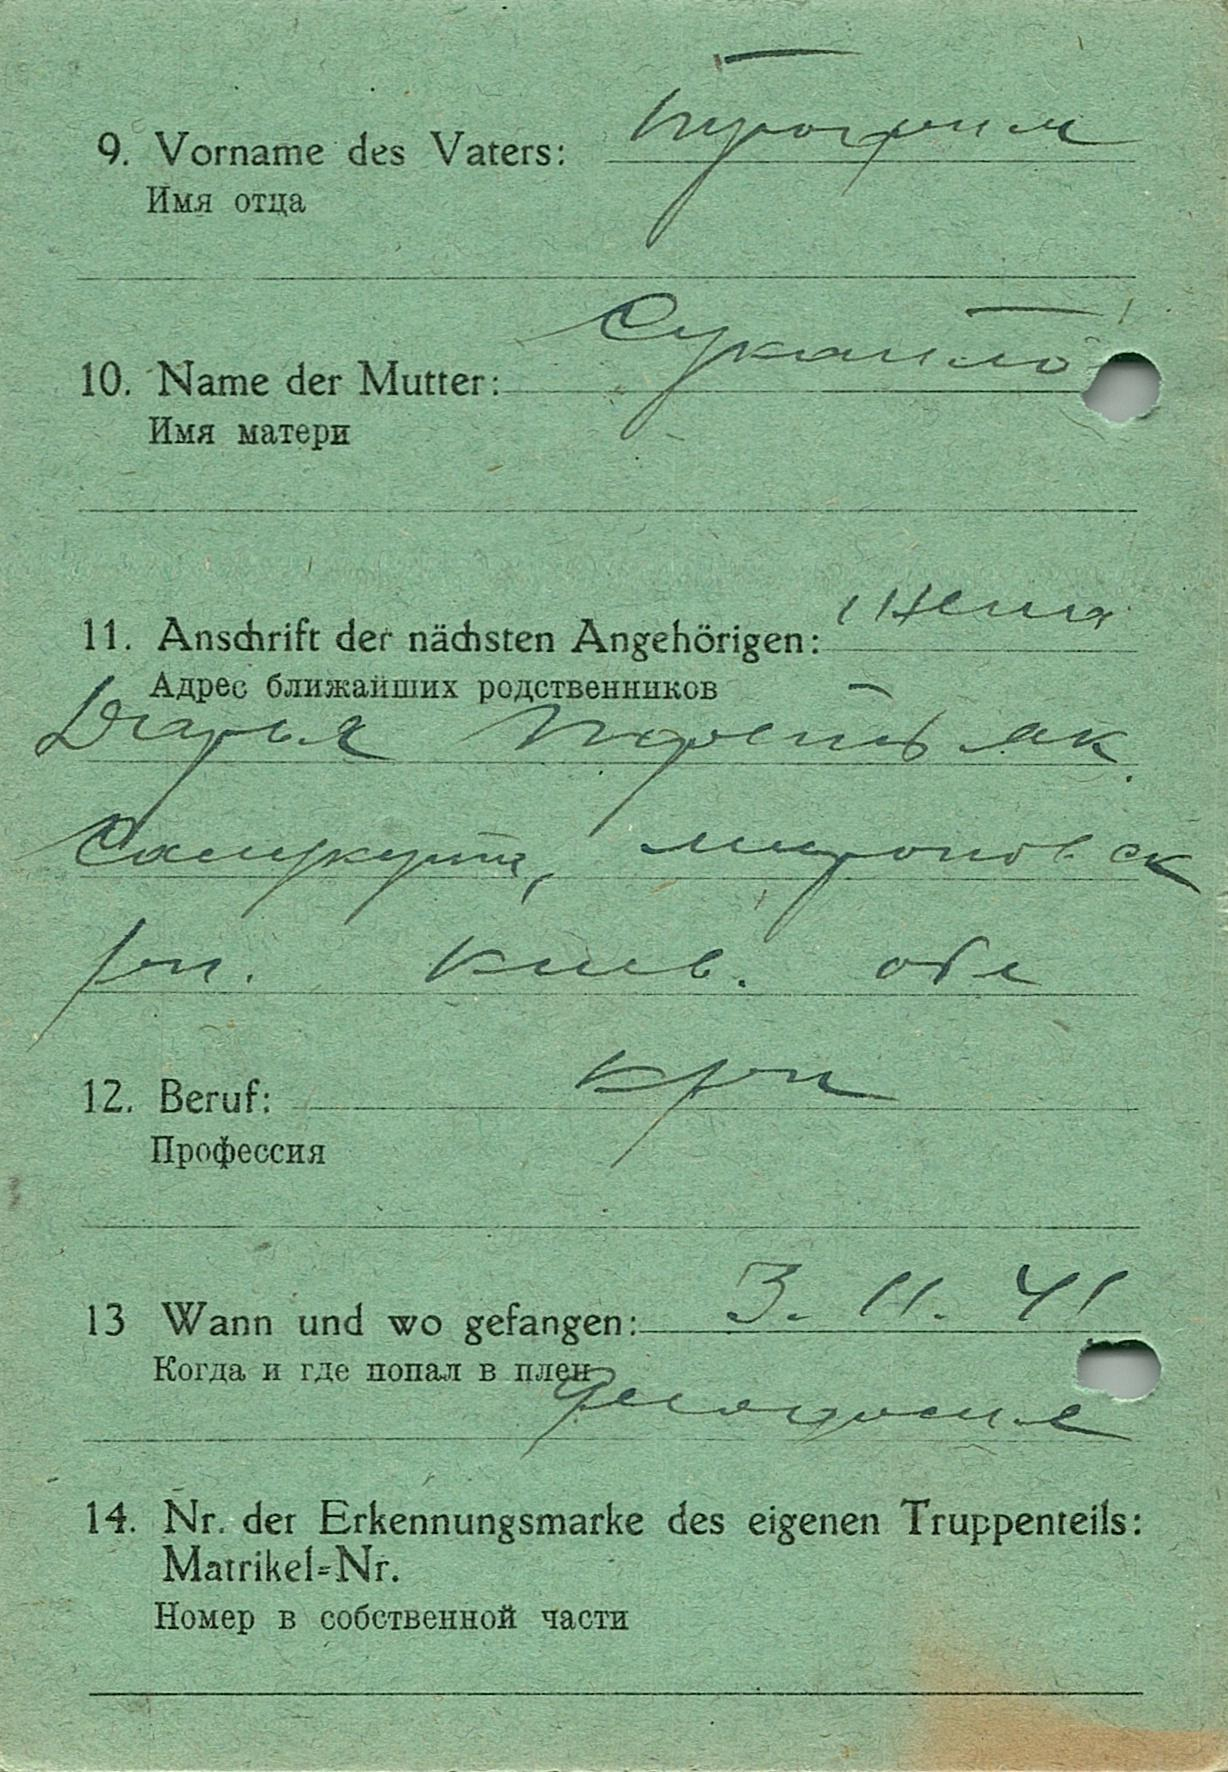 9. Vorname des Vaters: Трофим
Имя отца
10. Name der Mutter:
Имя матери
11. Anschrift der nächsten Angehörigen: жена
Адрес ближайших родственников
Дарья
миро­новск
рн. Киев. обл
12. Beruf: крн
Профессия
13 Wann und wo gefangen: 3. 11. 41
Когда и где попал в плен
Феодосия
14. Nr. der Erkennungsmarke des eigenen Truppenteils:
Matrikel=Nr.
Номер в собственной части